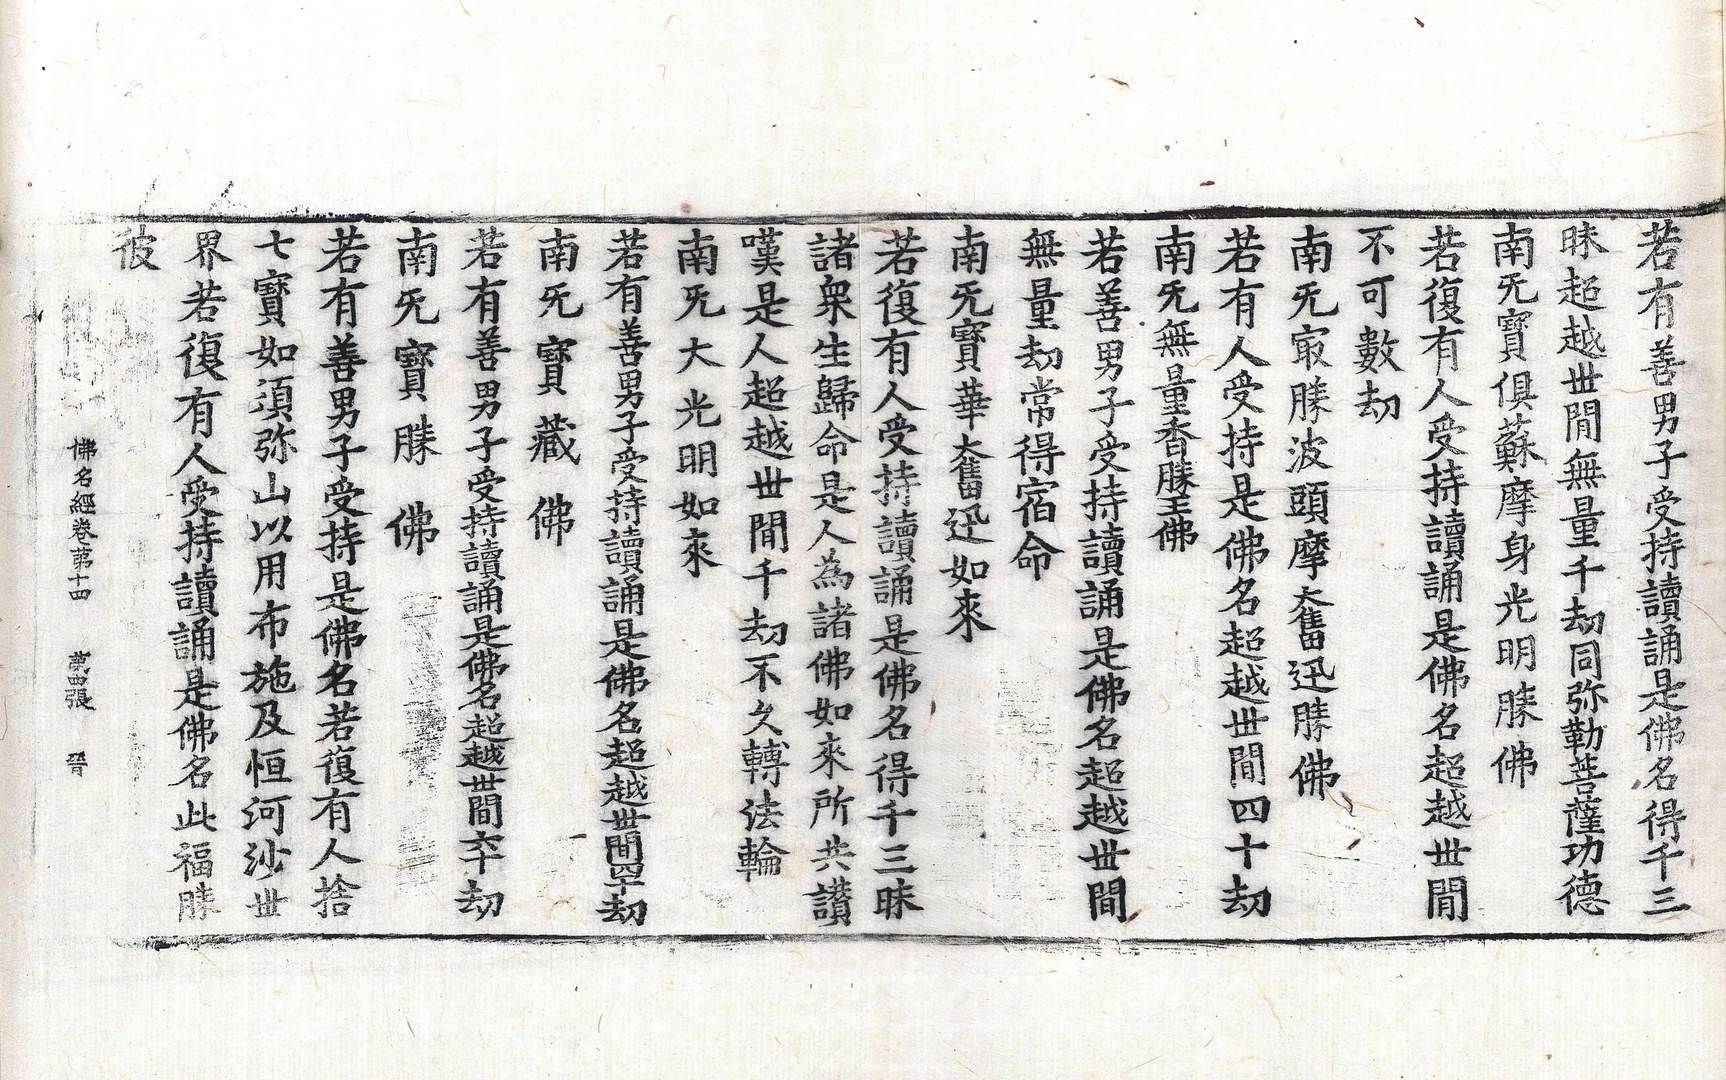 若有善男子受持讀誦是佛名得千三
昧超越世閒無量千劫同弥勒菩薩功德
南无寶俱蘇摩身光明勝佛
若復有人受持讀誦是佛名超越世閒
不可數劫
南无㝡勝波頭摩奮迅勝佛
若有人受持是佛名超越世閒四十劫
南无無量香勝王佛
若善男子受持讀誦是佛名超越世閒
無量劫常得宿命
南无寶華奮迅如來
若復有人受持讀誦是佛名得千三昧
諸衆生歸命是人為諸佛如來所共讃
嘆是人超越世閒千劫不久轉法輪
南无大光明如來
若有善男子受持讀誦是佛名超越世閒四十劫
南无寶藏佛
若有善男子受持讀誦是佛名超越世閒六十劫
南无寶勝佛
若有善男子受持是佛名若復有人捨
七寶如須弥山以用布施及恒河沙世
界若復有人受持讀誦是佛名此福勝
彼
佛名經卷第十四 第四張 晉